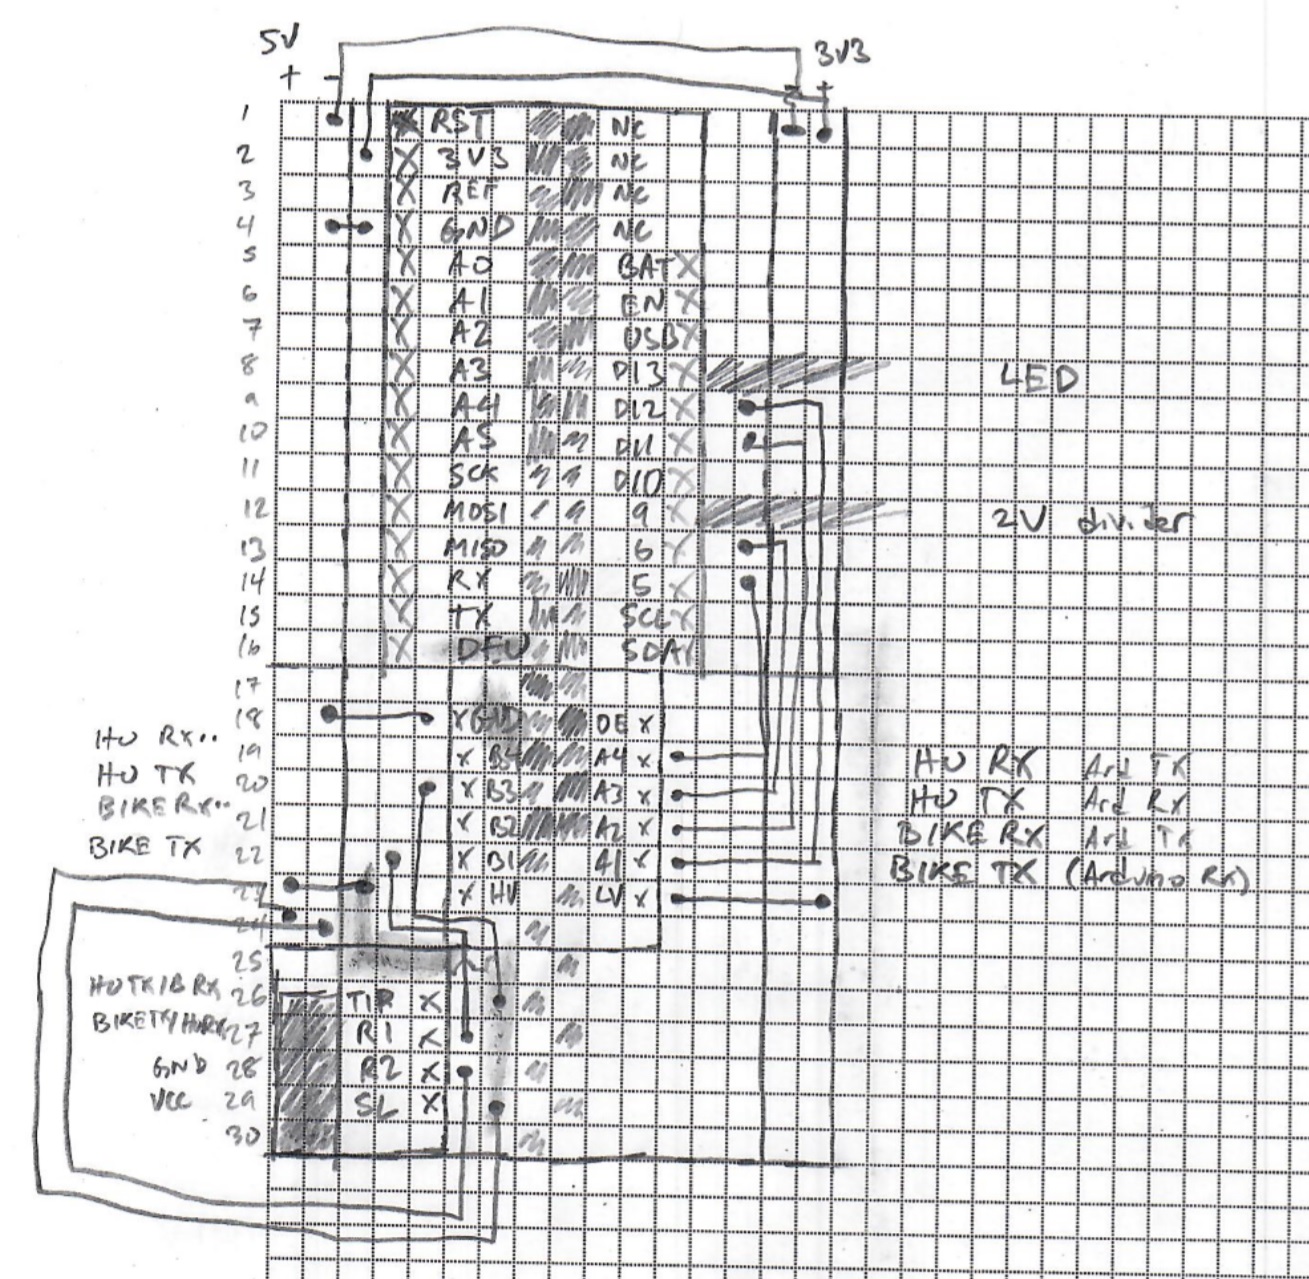 5V 3V3
+ - - +
1 RST NC
2 3V3 NC
3 REF NC
4 GND NC
5 A0 BAT X
6 X A1 EN X
7 X A2 USB X
8 X A3 D13 X LED
9 X A4 D12 X
10 X A5 D11 X
11 X SCK D10 X
12 X MOSI 9 X 2V divider
13 X MISO 6 X
14 X RX 5 X
15 X TX SCL X
16 X DFU SDA X
17
18 X GND OE X
HU RX..
19 X B4 A4 X HU RX Ard TX
HU TX
20 X B3 A3 X HU TX Ard RX
BIKE RX..
21 X B2 A2 X BIKE RX Ard TX
BIKE TX 22 X B1 A1 X BIKE TX (Arduino RX)
X HV LV X
24
25
HU TX/B RX 26 TIP X
BIKE TX/HURX 27 R1 X
GND 28 R2 X
VCC 29 SL X
30